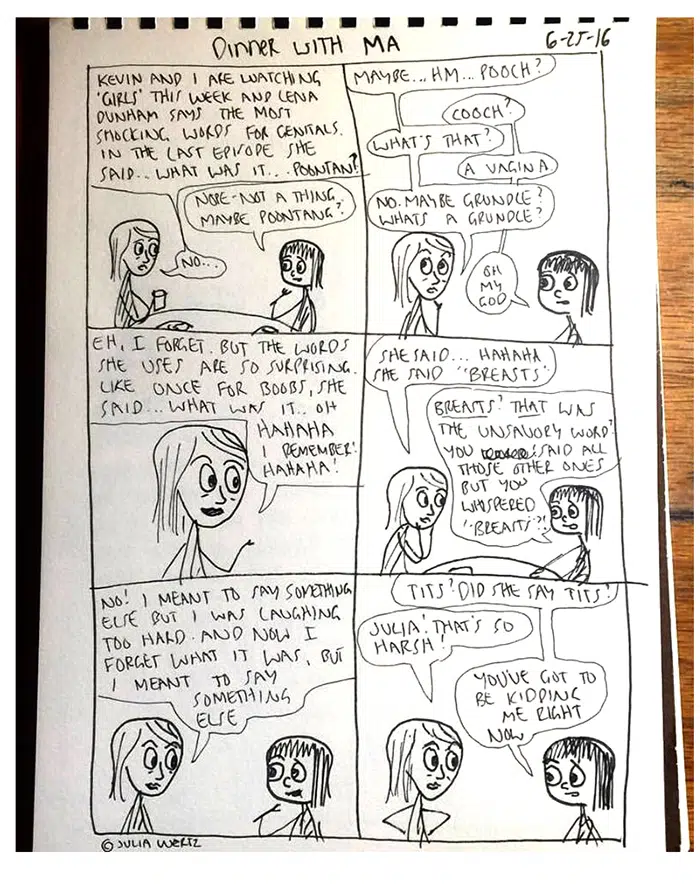 DINNER WITH MA
6-25-16
KEVIN AND I ARE WATCHING
'GIRLS' THIS WEEK AND LENA
DUNHAM SAYS THE MOST
SHOCKING WORDS FOR GENITALS.
IN THE LAST EPISODE SHE
SAID... WHAT WAS IT... POONTAN?
NOPE-NOT A THING,
MAYBE POONTANG?
NO...
MAYBE... HM... POOCH?
COOCH?
WHAT'S THAT?
A VAGINA
NO. MAYBE GRUNDLE?
WHATS A GRUNDLE?
OH
MY
GOD
EH, I FORGET. BUT THE WORDS
SHE USES ARE SO SURPRISING.
LIKE ONCE FOR BOOBS, SHE
SAID... WHAT WAS IT.. OH
HAHAHA
I REMEMBER!
HAHAHA!
SHE SAID... HAHAHA
SHE SAID "BREASTS"
BREASTS? THAT WAS
THE UNSAVORY WORD?
YOU SAID ALL
THOSE OTHER ONES
BUT YOU
WHISPERED
"BREASTS"?!
NO! I MEANT TO SAY SOMETHING
ELSE BUT I WAS LAUGHING
TOO HARD. AND NOW I
FORGET WHAT IT WAS, BUT
I MEANT TO SAY
SOMETHING
ELSE
TITS? DID SHE SAY TITS?
JULIA! THAT'S SO
HARSH!
YOU'VE GOT TO
BE KIDDING
ME RIGHT
NOW
© JULIA WERTZ